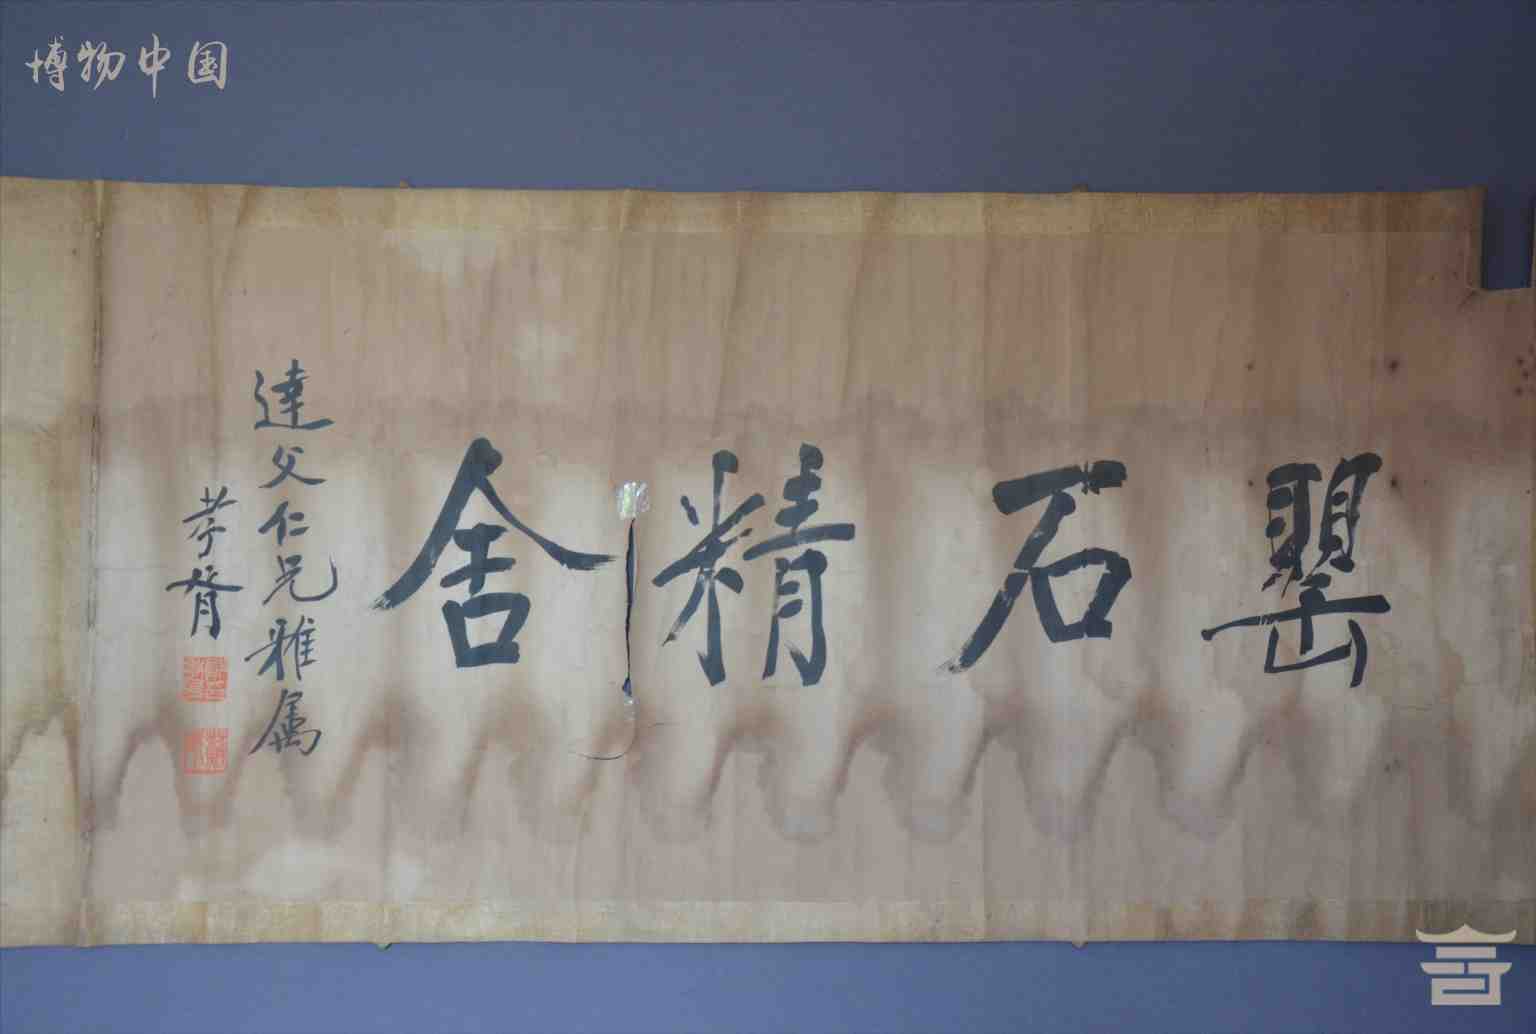 博物中国
罌石精舍
達父仁兄雅属
孝胥